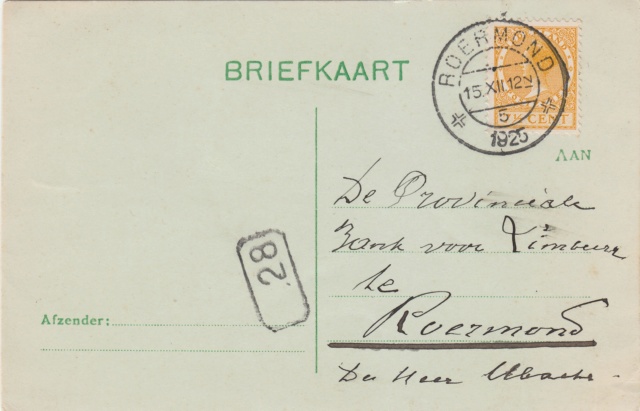 BRIEFKAART
ROERMOND
15.XII.12N
5
1925
CENT
AAN
De Provinciale
Bank voor Limburg
te
Roermond
Den Heer
28
Afzender: